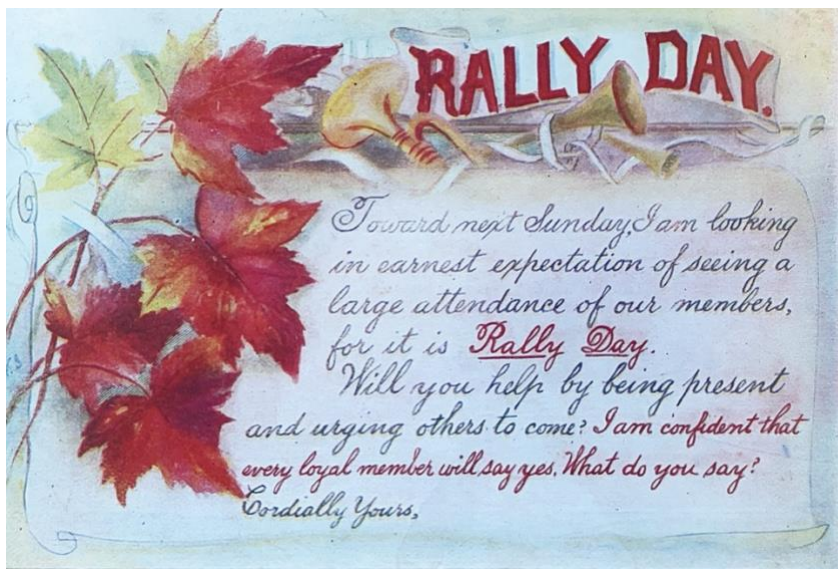 RALLY DAY.
Toward next Sunday, I am looking
in earnest expectation of seeing a
large attendance of our members,
for it is Rally Day.
Will you help by being present
and urging others to come? I am confident that
every loyal member will say yes. What do you say?
Cordially Yours,